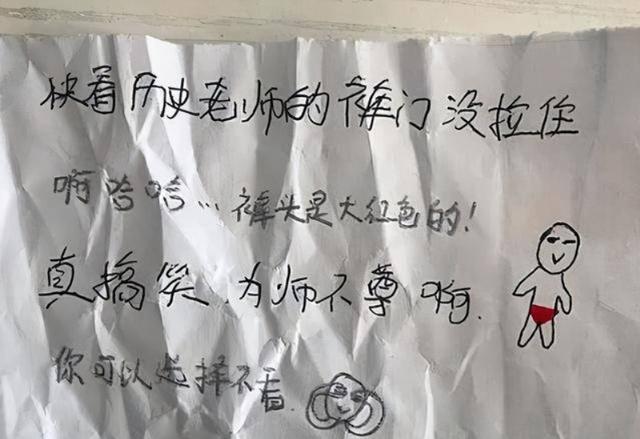 快看历史老师的裤门没拉住
啊哈哈...裤头是大红色的!
真搞笑、为师不尊啊.
你可以选择不看.